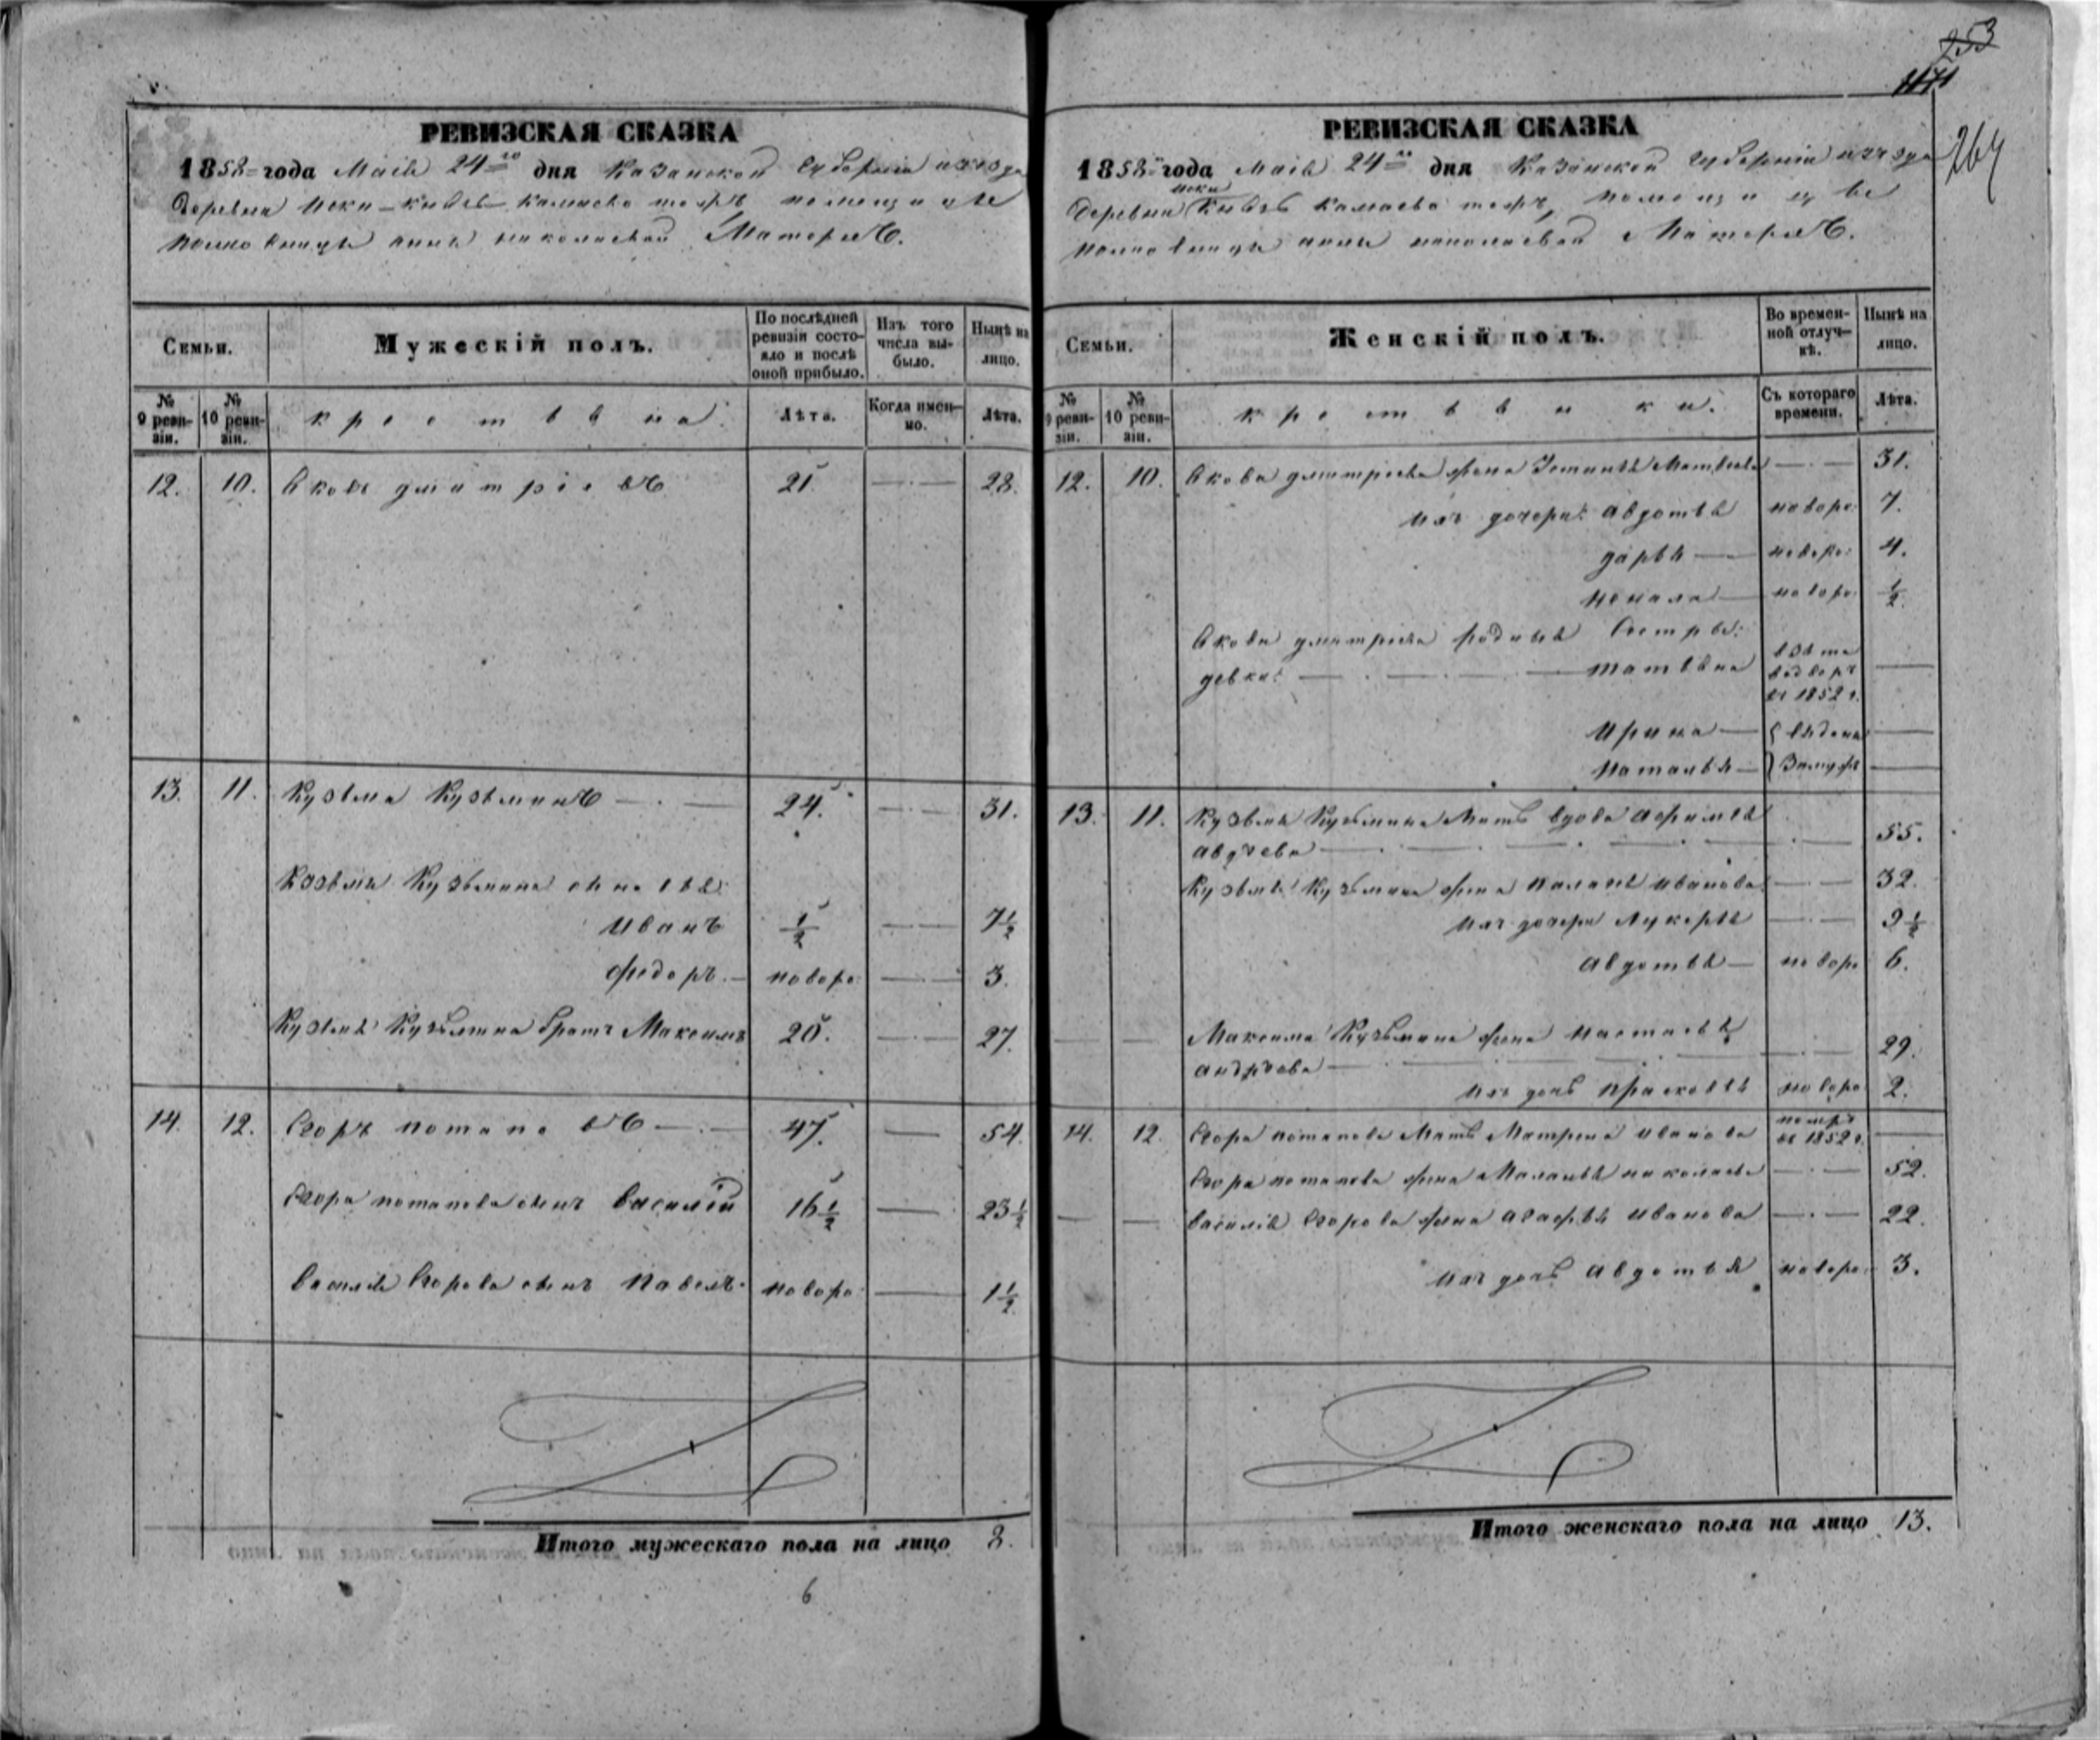 253
1171
264
РЕВИЗСКАЯ СКАЗКА
1858 года Маія 24го дня Казанской Губерніи и уезда
деревни Иски-Князь Камаево тожъ помещицы
полковницы анны николаевой
Семьи.
Мужескій полъ.
По послѣдней ревизіи состояло и послѣ оной прибыло.
Изъ того числа выбыло.
Нынѣ на лицо.
№ 9 ревизіи.
№ 10 ревизіи.
крестьяна
Лѣта.
Когда именно.
Лѣта.
12. 10. Яковъ дмитріевъ 21 28.
13. 11. Кузьма Кузьминъ 24. 31.
Козьмы Кузьмина сыновья:
Иванъ 1/2 7 1/2
Федоръ новоро: 3.
Кузьмы Кузьмина братъ Максимъ 20. 27.
14. 12. Егоръ потаповъ 47. 54.
Егора потапова сынъ Василій 16 1/2 23 1/2
Василья Егорова сынъ Павелъ новоро: 1 1/2
Итого мужескаго пола на лицо 8.
6
РЕВИЗСКАЯ СКАЗКА
1858 года Маія 24го дня Казанской губерніи и уезда
деревни Иски Князь Камаево тожъ, помещицы
полковницы анны николаевой
Семьи.
Женскій полъ.
Во временной отлучкѣ.
Нынѣ на лицо.
№ 9 ревизіи.
№ 10 ревизіи.
крестьянки.
Съ котораго времени.
Лѣта.
12. 10. Якова дмитріева жена Устинья Матвеева 31.
ихъ дочери: авдотья новоро: 7.
дарья новоро: 4.
новоро: 1/2.
Якова дмитріева родныя Сестры:
девки: татьяна взята во дворъ въ 1852 г.
Ирина выдана
Наталья Замужъ
13. 11. Кузьмы Кузьмина Мать вдова афимья
55.
Кузьмы Кузьмина жена Паланья Иванова 32.
ихъ дочери Лукерья 9 1/2
авдотья новоро 6.
Максима Кузьмина жена Настасья
андреева 29.
ихъ дочь Прасковья новоро 2.
14. 12. Егора потапова Мать Матрена Иванова померъ въ 1852 г.
Егора потапова жена Маланья николаева 52.
Василья Егорова жена агафья Иванова 22.
ихъ дочь авдотья новоро: 3.
Итого женскаго пола на лицо 13.